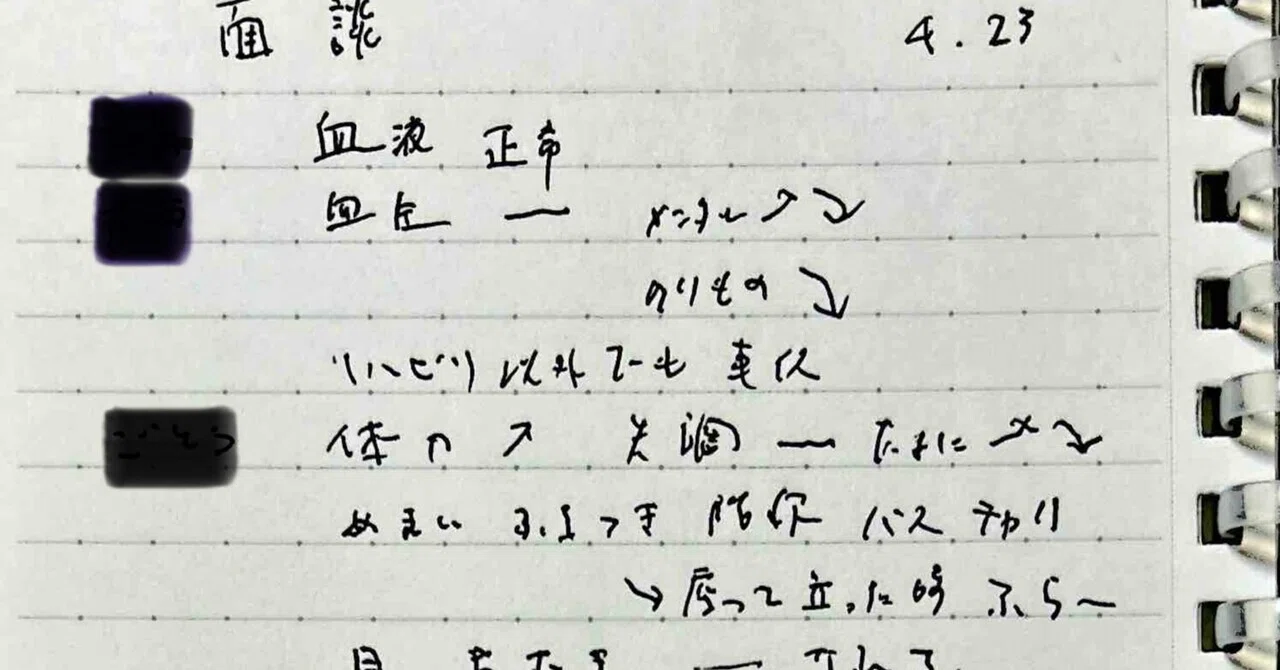 面談 4.23
血液 正常
血圧 ー メンタル ↗ ↘
のりもの ↘
リハビリ以外でも 車イス
体力 ↗ 失調 ー たまに ↗ ↘
めまい ふらつき 階段 バス チャリ
↘ 座って立った時 ふらー